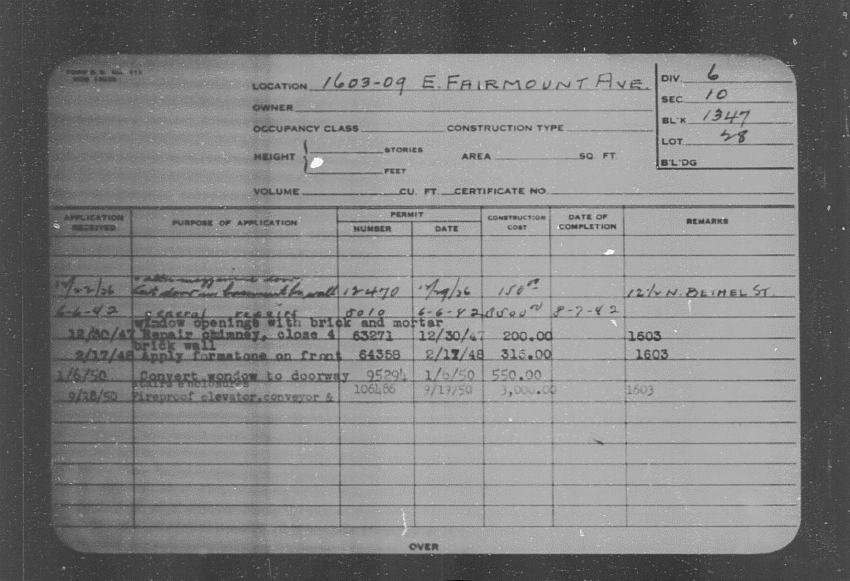 LOCATION 1603-09 E. FAIRMOUNT AVE.
DIV. 6
OWNER
SEC 10
OCCUPANCY CLASS CONSTRUCTION TYPE
BL'K 1347
HEIGHT { STORIES AREA SQ. FT.
LOT 28
FEET
B'L'DG
VOLUME CU. FT. CERTIFICATE NO.
APPLICATION RECEIVED PURPOSE OF APPLICATION PERMIT NUMBER DATE CONSTRUCTION COST DATE OF COMPLETION REMARKS
door
12/22/26 Cut door in basement wall 12470 12/29/26 150.00 12 1/2 N. BETHEL ST.
6-6-42 general repairs 8010 6-6-42 8-7-42
window openings with brick and mortar
12/30/47 Repair chimney, close 4 63271 12/30/47 200.00 1603
brick wall
2/17/48 Apply formstone on front 64358 2/17/48 315.00 1603
1/6/50 Convert wondow to doorway 95294 1/6/50 550.00
stairs enclosures
9/18/50 Fireproof elevator,conveyor & 106486 9/17/50 3,000.00 1603
OVER